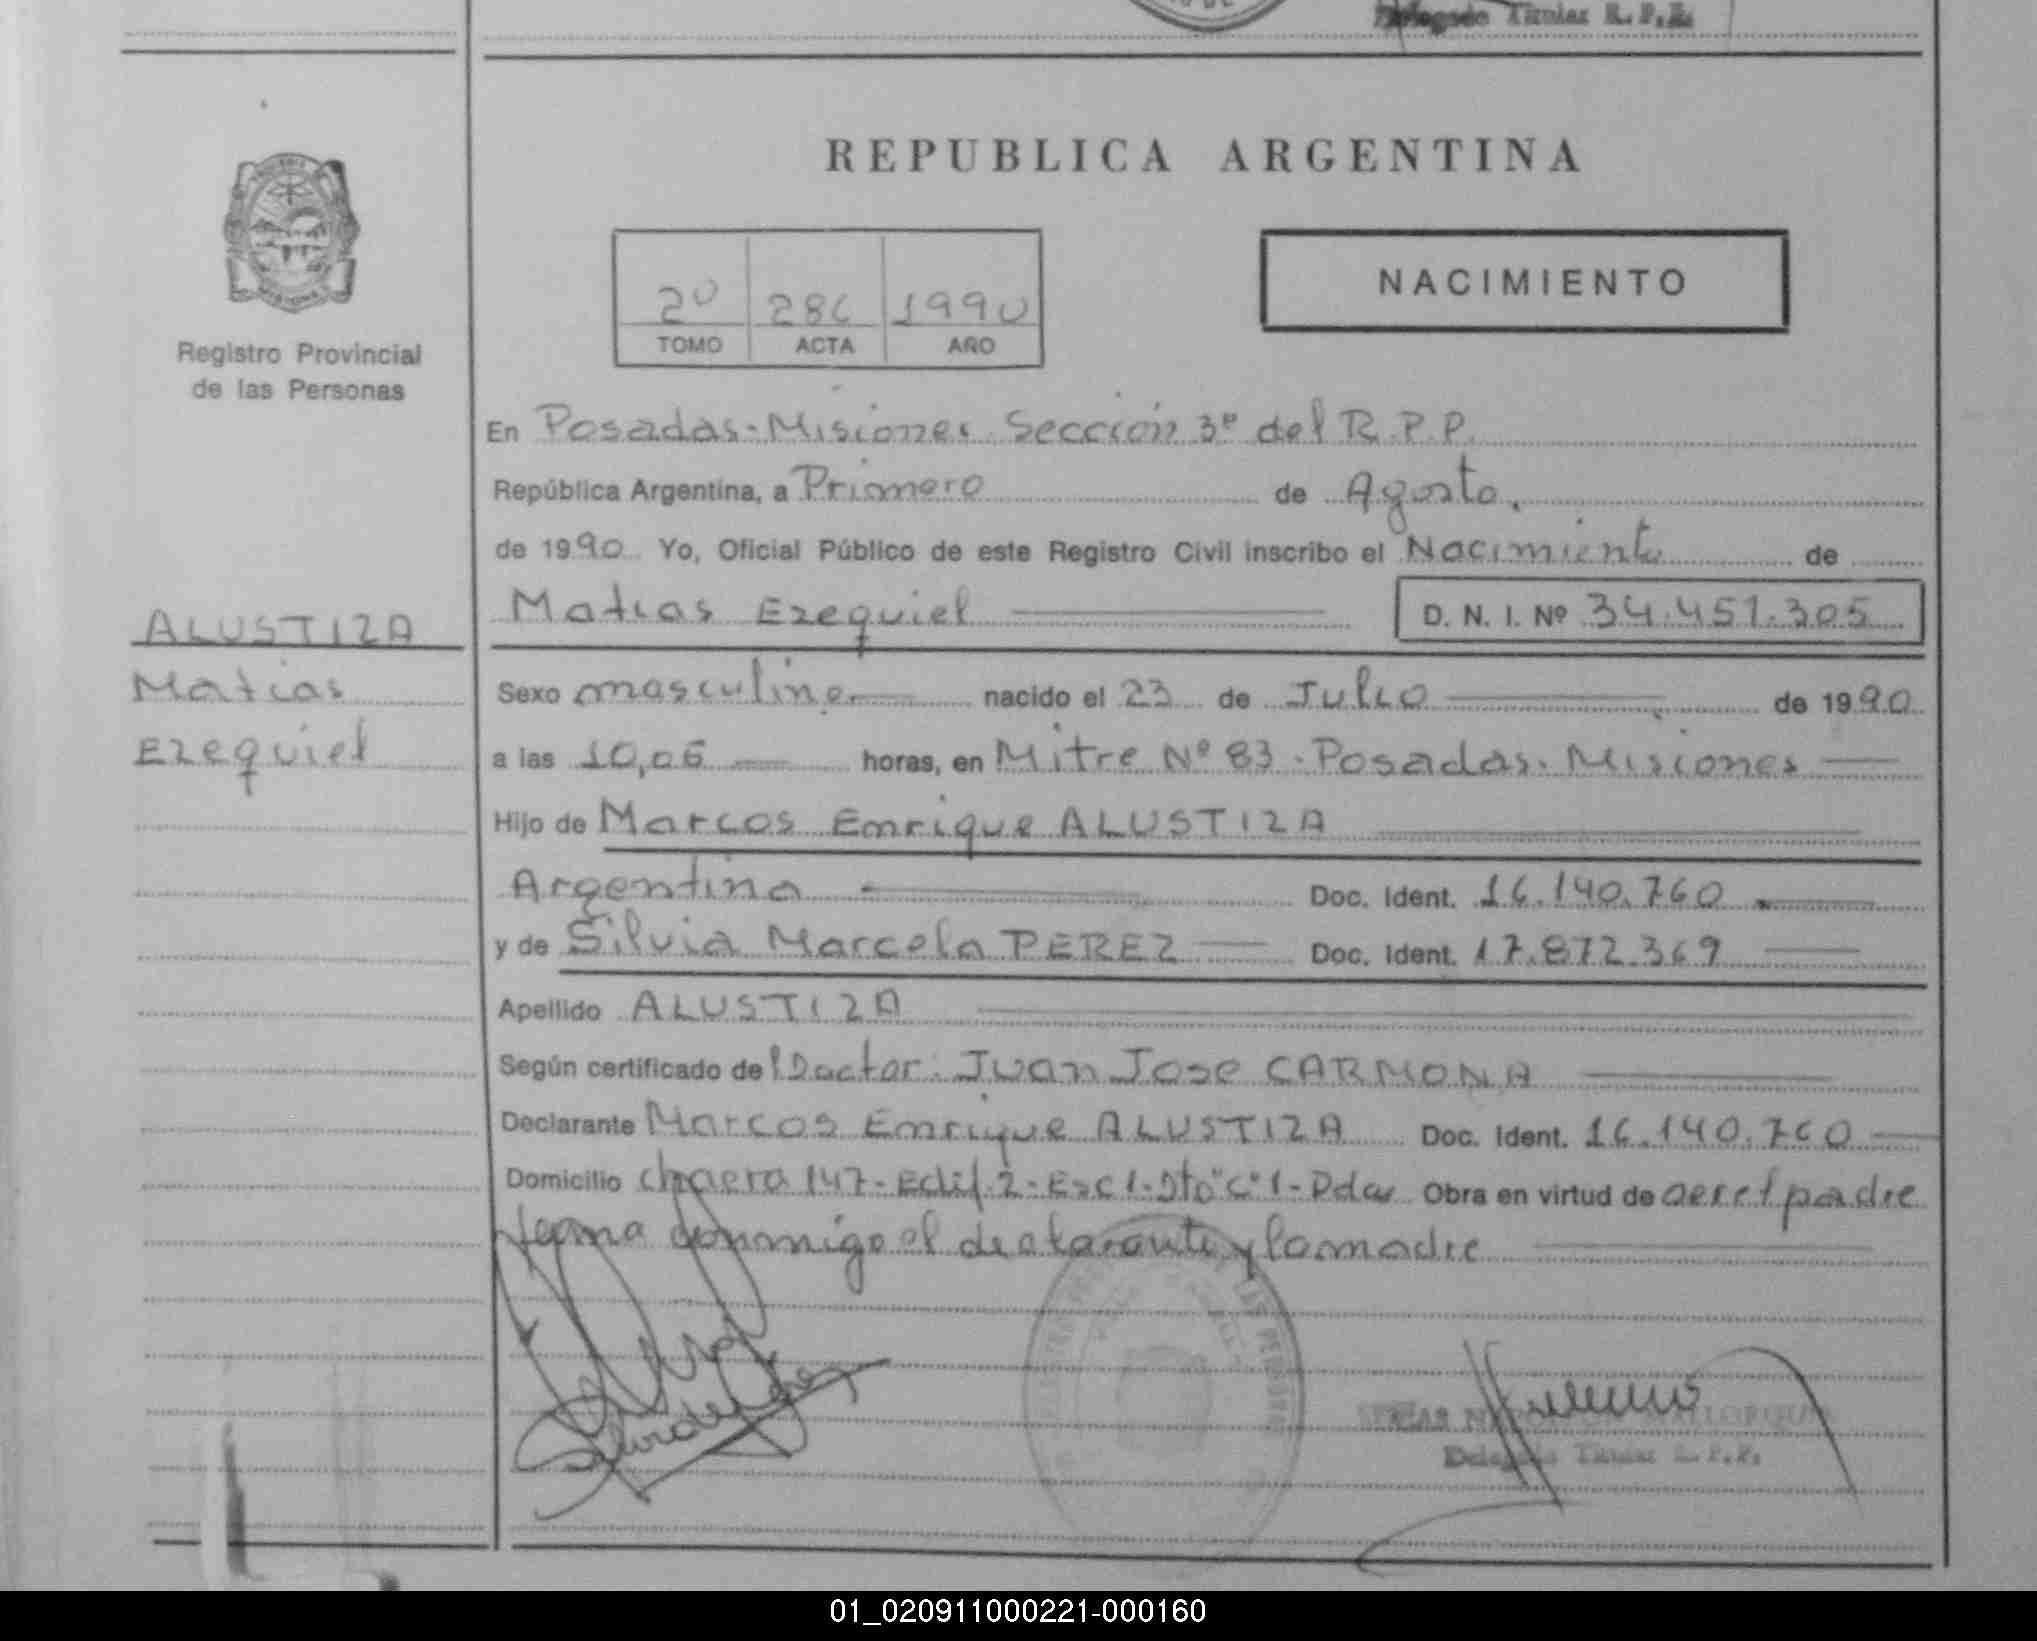 Delegado Titular R.P.P.
REPUBLICA ARGENTINA
NACIMIENTO
2º 286 1990
TOMO ACTA AÑO
Registro Provincial
de las Personas
En Posadas-Misiones. Sección 3ª del R.P.P.
República Argentina, a Primero de Agosto.
de 1990 Yo, Oficial Público de este Registro Civil inscribo el Nacimiento de
Matias Ezequiel D. N. I. Nº 34.451.305
ALUSTIZA
Matias
Ezequiel
Sexo masculino nacido el 23 de Julio de 1990
a las 10,06 horas, en Mitre Nº 83-Posadas-Misiones
Hijo de Marcos Enrique ALUSTIZA
Argentina Doc. Ident. 16.140.760
y de Silvia Marcela PEREZ Doc. Ident. 17.872.369
Apellido ALUSTIZA
Según certificado del Doctor: Juan Jose CARMONA
Declarante Marcos Enrique ALUSTIZA Doc. Ident. 16.140.760
Domicilio chacra 147-Edif.2-Esc 1-Dto"C"1-Pdas Obra en virtud de ser el padre
firma conmigo el declarante y la madre
Delegado Titular R.P.P.
01_020911000221-000160